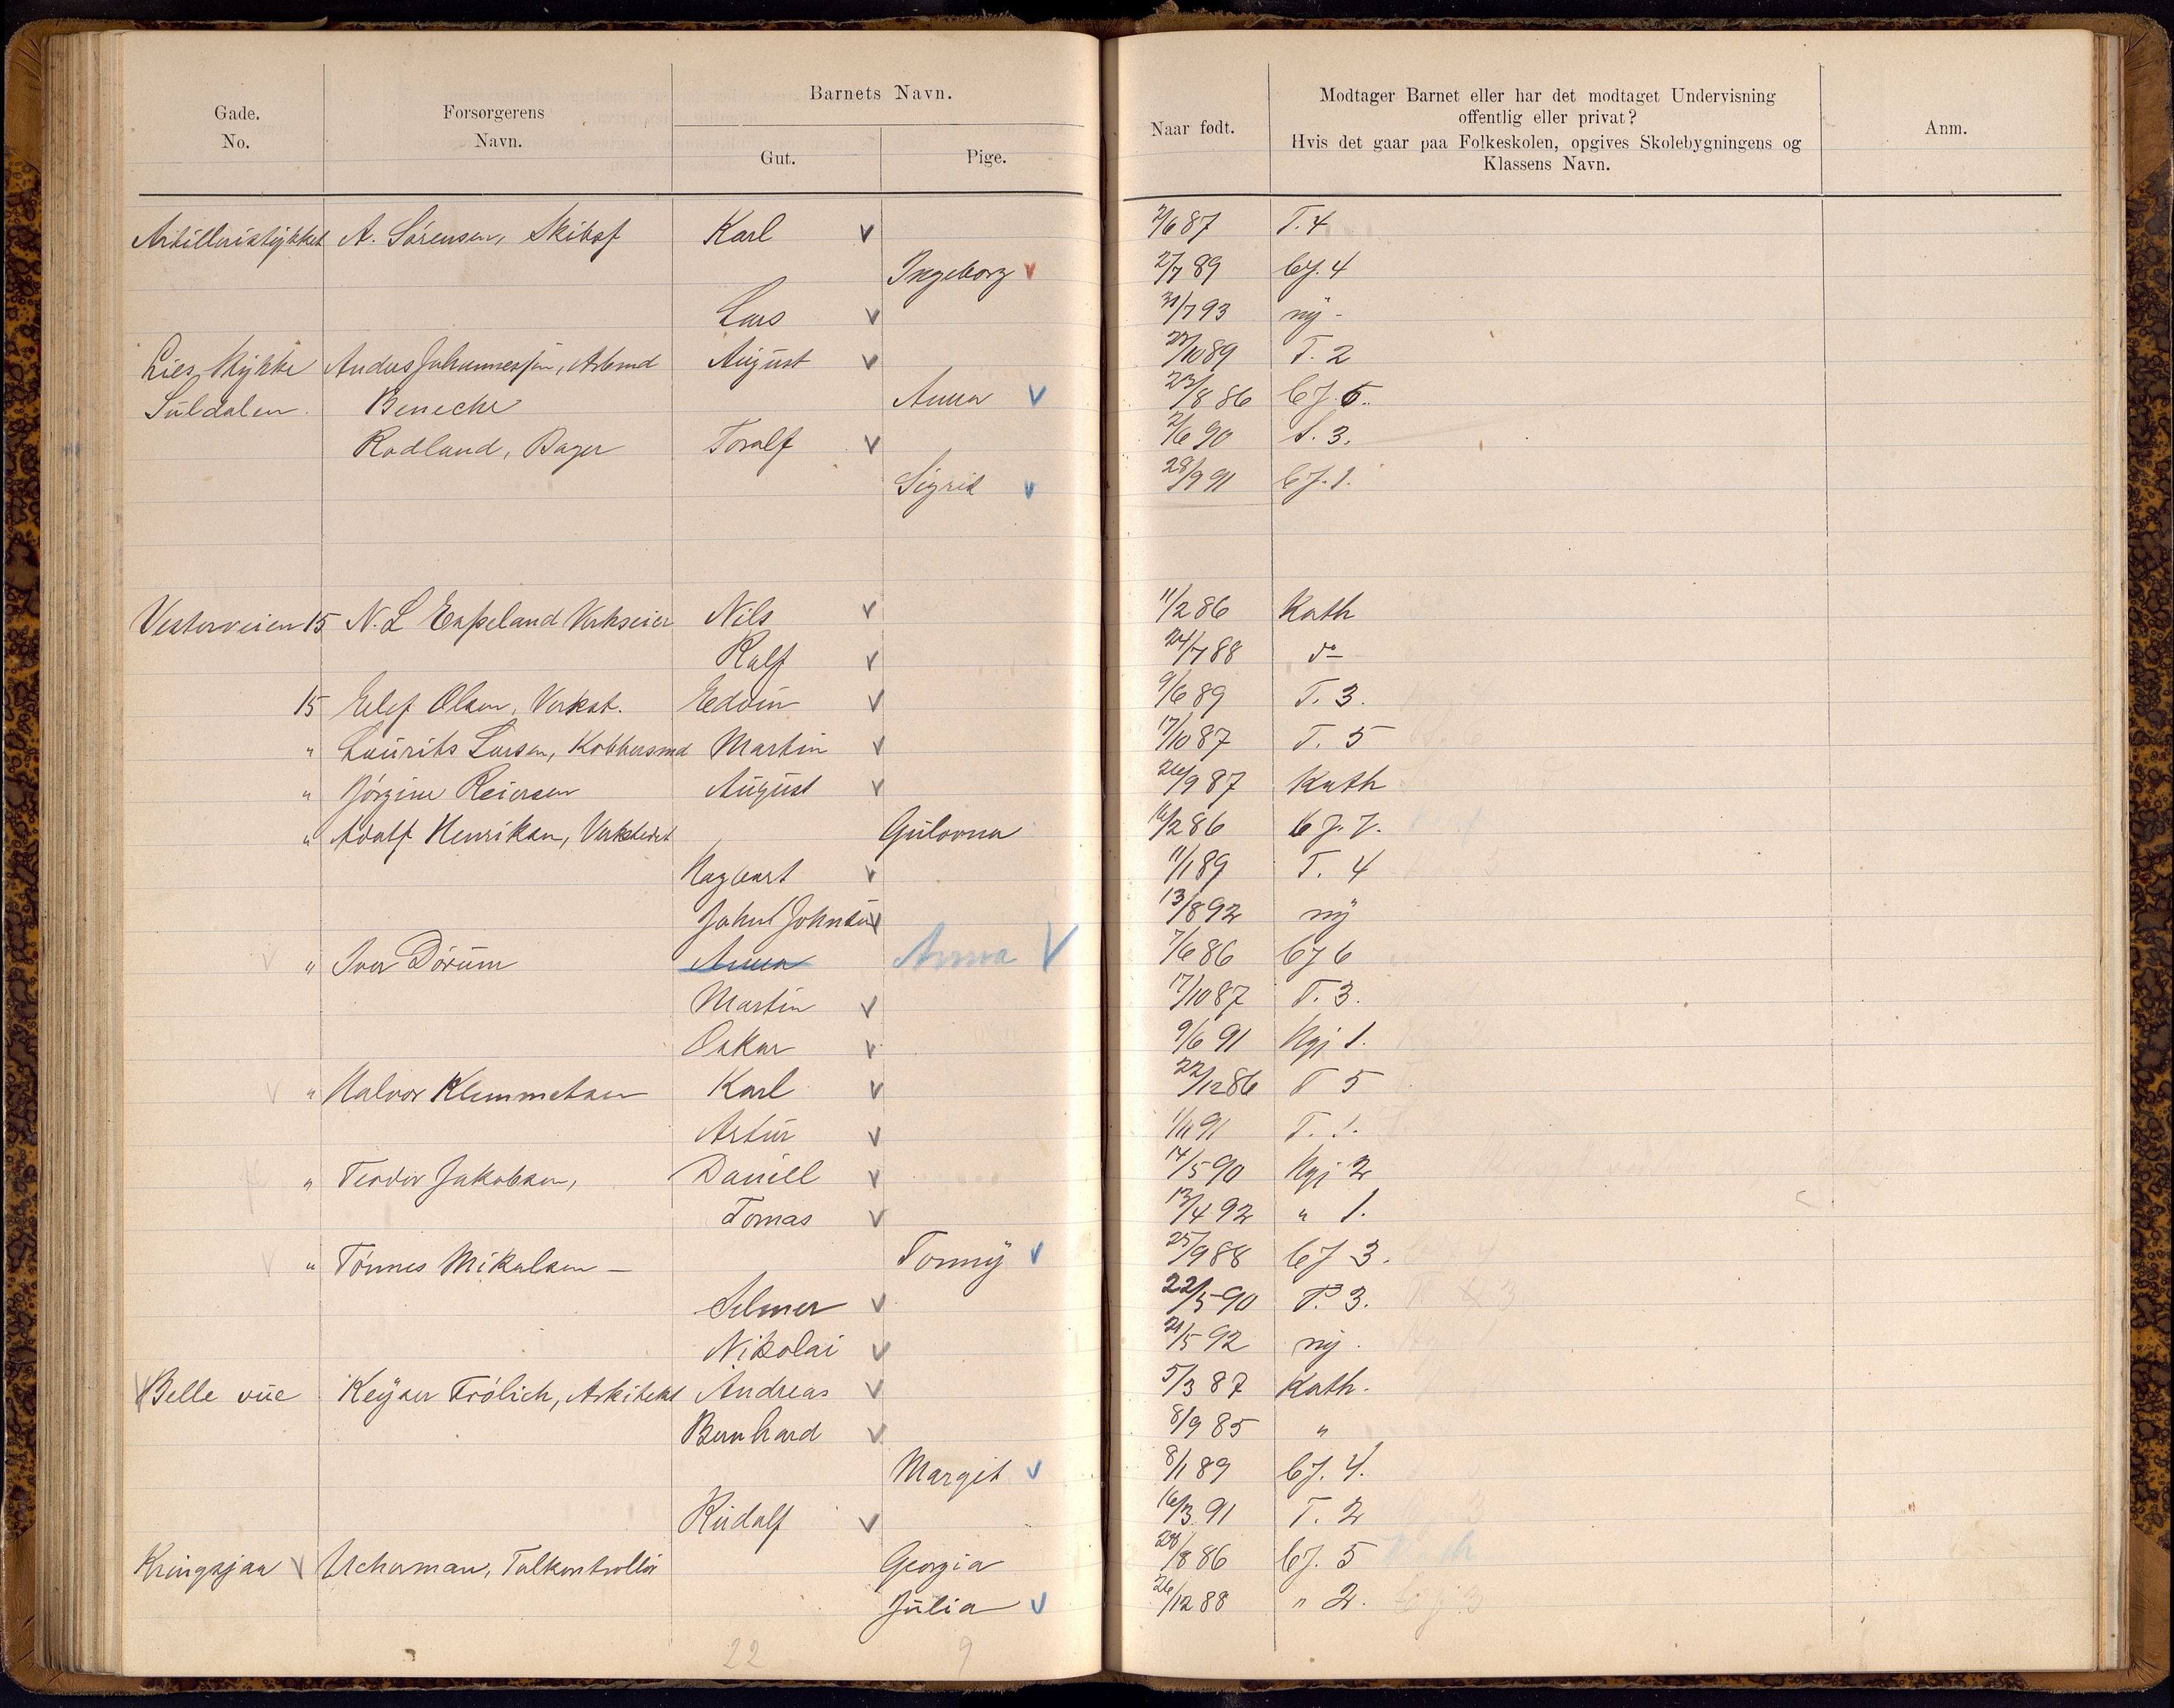 Gade. No.
Forsørgerens Navn.
Barnets Navn.
Gut.
Pige.
Naar født.
Modtager Barnet eller har det modtaget Undervisning
offentlig eller privat?
Hvis det gaar paa Folkeskolen, opgives Skolebygningens og
Klassens Navn.
Anm.
Artilleristykket A. Sørensen, Skibsf Karl v 2/6 87 T. 4
Ingeborg v 2/7 89 bj. 4
Lars v 31/7 93 ny -
Lies Stykke Anders Johannessen, Arbmd August v /10 89 T. 2
Suldalen. Benecke Anna v 23/8 86 bj. 6.
Rodland, Bager Toralf v 2/6 90 S. 3.
Sigrid v 28/9 91 bj. 1.
Vesterveien 15 N. L Espeland Verkseier Nils v 11/2 86 Kath
Ralf v 24/7 88 do
15 Eilef Olsen, Verkst. Eddin v 9/6 89 T. 3.
" Laurits Larsen, Kobbersmd Martin v 17/10 87 T. 5
" Jørgine Reiersen August v 26/9 87 Kath
" Adolf Henriksen, Verkstedet Gulovna 16/2 86 bj. 7.
Hagbart v 11/1 89 T. 4
Johnsen v 13/8 92 ny
" Iver Dørum Anna Anna V 7/6 86 bj 6
Martin v 17/10 87 T. 3.
Oskar v 9/6 91 Ngj 1.
" Halvor Klemmetsen Karl v 22/12 86 T 5
Artur v 1/11 91 T. 1.
" Teodor Jakobsen, Daniell v 14/5 90 Ngj 2
Tomas v 13/4 92 " 1.
" Tønnes Mikalsen - Tonny v 25/9 88 bj 3.
Selmer v 22/5 90 T. 3.
Nikolai v 21/5 92 ny.
Belle vue Keyser Frølich, Arkitekt Andreas v 5/3 87 Kath.
Bernhard v 8/9 85 "
Margit v 8/1 89 bj. 4.
Rudolf v 16/3 91 T. 2
Kringsjaa v Ucherman, Tolkontrollør Georgia 28/8 86 bj. 5
Julia v 26/12 88 " 2. bj 3
22 9